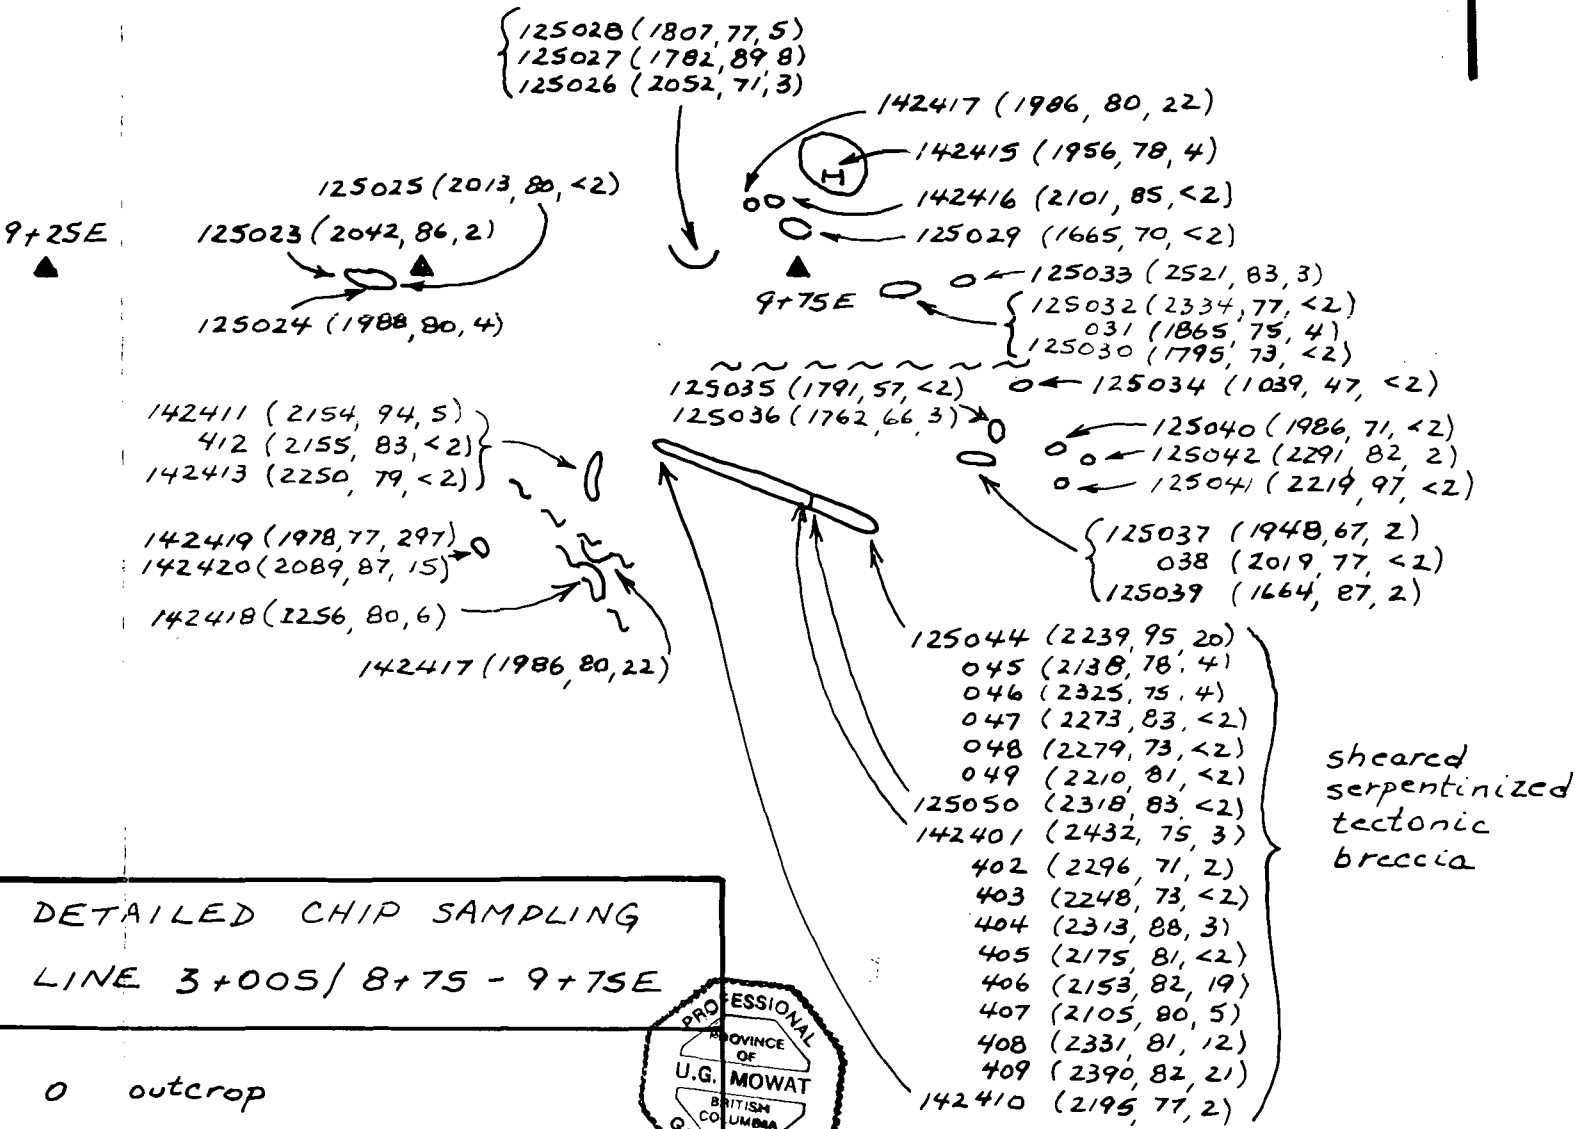 125028 (1807, 77, 5)
125027 (1782, 89, 8)
125026 (2052, 71, 3)
142417 (1986, 80, 22)
142415 (1956, 78, 4)
142416 (2101, 85, <2)
125029 (1665, 70, <2)
125025 (2013, 80, <2)
9+25E
125023 (2042, 86, 2)
125024 (1988, 80, 4)
9+75E
125033 (2521, 83, 3)
125032 (2334, 77, <2)
031 (1865, 75, 4)
125030 (1795, 73, <2)
125035 (1791, 57, <2)
125034 (1039, 47, <2)
125036 (1762, 66, 3)
142411 (2154, 94, 5)
412 (2155, 83, <2)
142413 (2250, 79, <2)
125040 (1986, 71, <2)
125042 (2291, 82, 2)
125041 (2219, 97, <2)
142419 (1978, 77, 297)
142420 (2089, 87, 15)
142418 (2256, 80, 6)
142417 (1986, 80, 22)
125037 (1948, 67, 2)
038 (2019, 77, <2)
125039 (1664, 87, 2)
125044 (2239, 95, 20)
045 (2138, 78, 4)
046 (2325, 75, 4)
047 (2273, 83, <2)
048 (2279, 73, <2)
049 (2210, 81, <2)
125050 (2318, 83, <2)
142401 (2432, 75, 3)
402 (2296, 71, 2)
403 (2248, 73, <2)
404 (2313, 88, 3)
405 (2175, 81, <2)
406 (2153, 82, 19)
407 (2105, 80, 5)
408 (2331, 81, 12)
409 (2390, 82, 21)
142410 (2195, 77, 2)
sheared
serpentinized
tectonic
breccia
DETAILED CHIP SAMPLING
LINE 3+00S / 8+75 - 9+75E
O outcrop
PROFESSIONAL
PROVINCE
OF
U.G. MOWAT
BRITISH
COLUMBIA